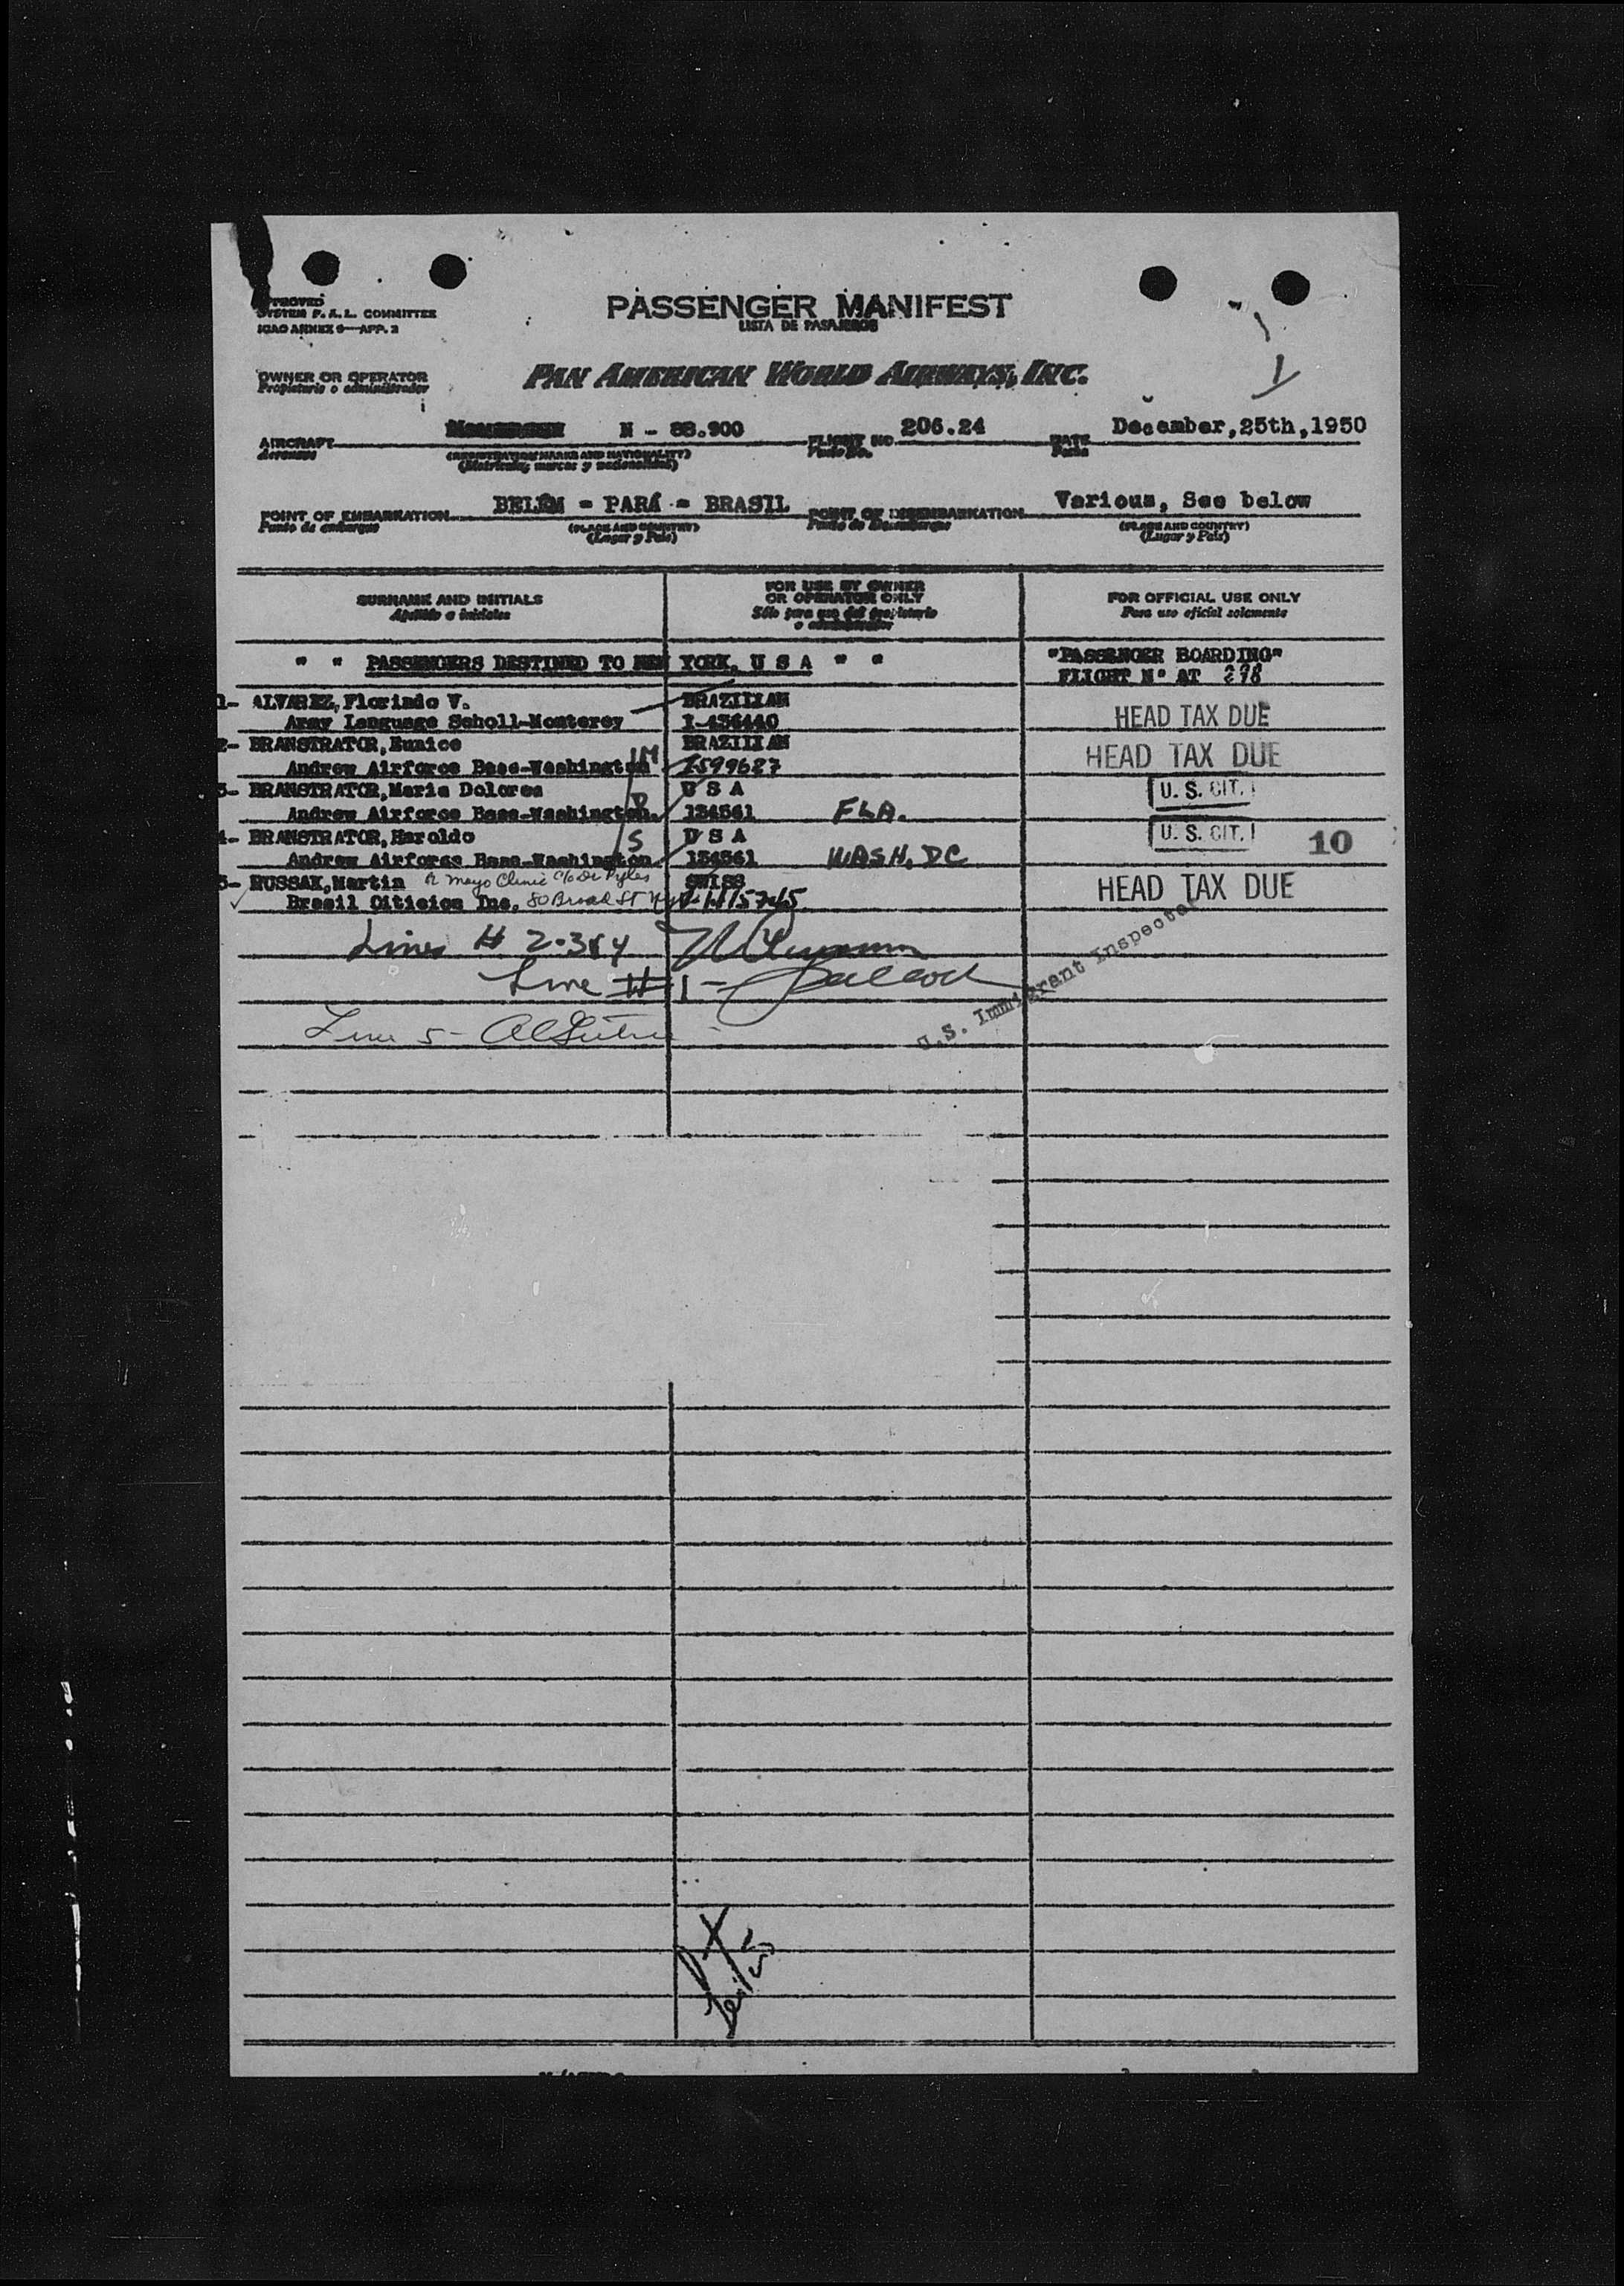 APPROVED
SYSTEM F.A.L. COMMITTEE
ICAO ANNEX 9—APP. 3
PASSENGER MANIFEST
LISTA DE PASAJEROS
OWNER OR OPERATOR
Propietario o administrador
PAN AMERICAN WORLD AIRWAYS, INC.
AIRCRAFT N - 88.900 FLIGHT NO. 206.24 DATE December,25th,1950
Aeronave (REGISTRATION MARKS AND NATIONALITY) Vuelo No. Fecha
(Matricula, marcas y nacionalidad)
POINT OF EMBARKATION BELÉM = PARÁ = BRASIL POINT OF DISEMBARKATION Various, See below
Punto de embarque (PLACE AND COUNTRY) Punto de Desembarque (PLACE AND COUNTRY)
(Lugar y País) (Lugar y País)
SURNAME AND INITIALS FOR USE BY OWNER OR OPERATOR ONLY FOR OFFICIAL USE ONLY
Apellido e iniciales Sólo para uso del propietario o administrador Para uso oficial solamente
" " PASSENGERS DESTINED TO NEW YORK, U S A " " "PASSENGER BOARDING"
FLIGHT Nº AT
1- ALVAREZ, Florindo V. BRAZILIAN
Army Language Scholl-Monterey I-436440 HEAD TAX DUE
2- BRANSTRATOR, Eunice BRAZILIAN
Andrew Airforce Base-Washington M I599627 HEAD TAX DUE
3- BRANSTRATOR, Maria Dolores U S A U. S. CIT.
Andrew Airforce Base-Washington. D 134561 FLA.
4- BRANSTRATOR, Haroldo S U S A U. S. CIT. 10
Andrew Airforce Base-Washington 134561 WASH, DC
5- RUSSAK, Martin Mayo Clinic c/o Dr Pyles SWISS HEAD TAX DUE
Brasil Oiticica Inc. 80 Broad St NY
Lines # 2-3&4
Line #1-
Line 5-
U.S. Immigrant Inspector